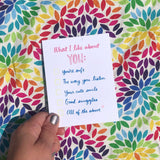 What I like about
YOU:
you're soft
The way you listen
Your cute smile
Good snuggles
All of the above